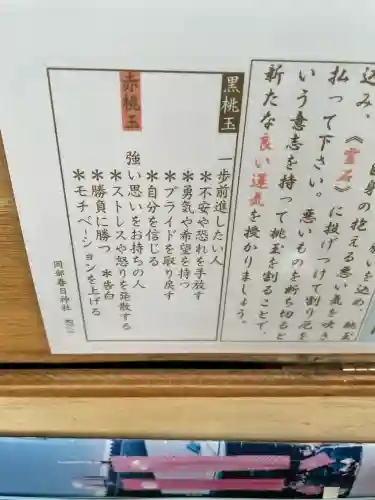 の抱える悪い気を吹き
込み、《霊石》に投げつけて割り厄を
払って下さい。悪いものを断ち切ると
いう意志を持って桃玉を割ることで、
新たな良い運気を授かりましょう。
黒桃玉
一歩前進したい人
＊不安や恐れを手放す
＊勇気や希望を持つ
＊プライドを取り戻す
＊自分を信じる
赤桃玉
強い思いをお持ちの人
＊ストレスや怒りを発散する
＊勝負に勝つ　＊告白
＊モチベーションを上げる
岡部春日神社